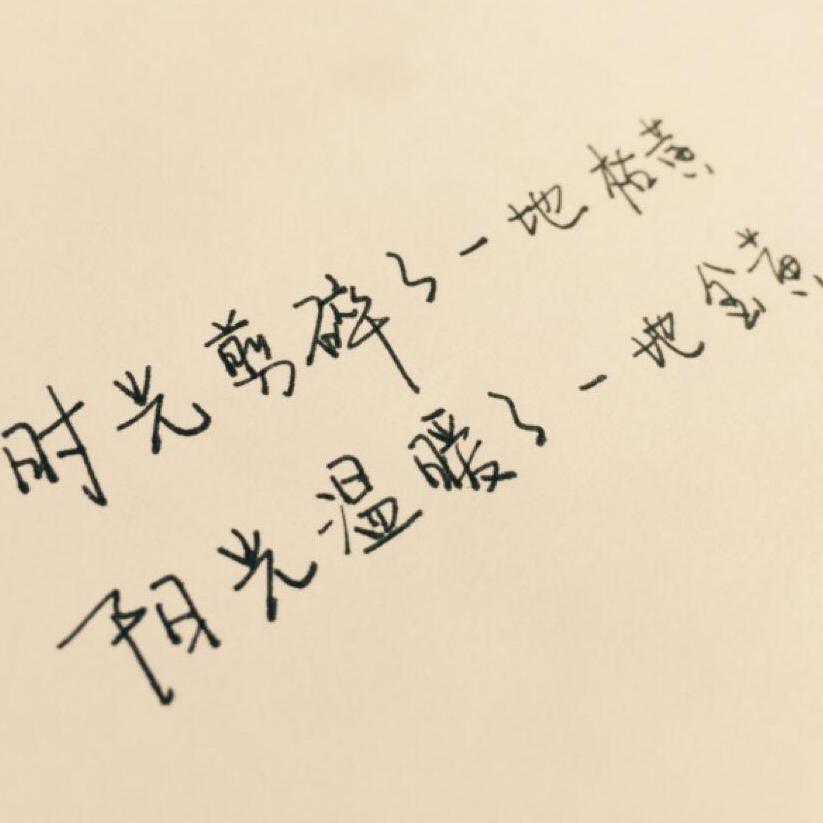 时光剪碎了一地枯黄
阳光温暖了一地金黄